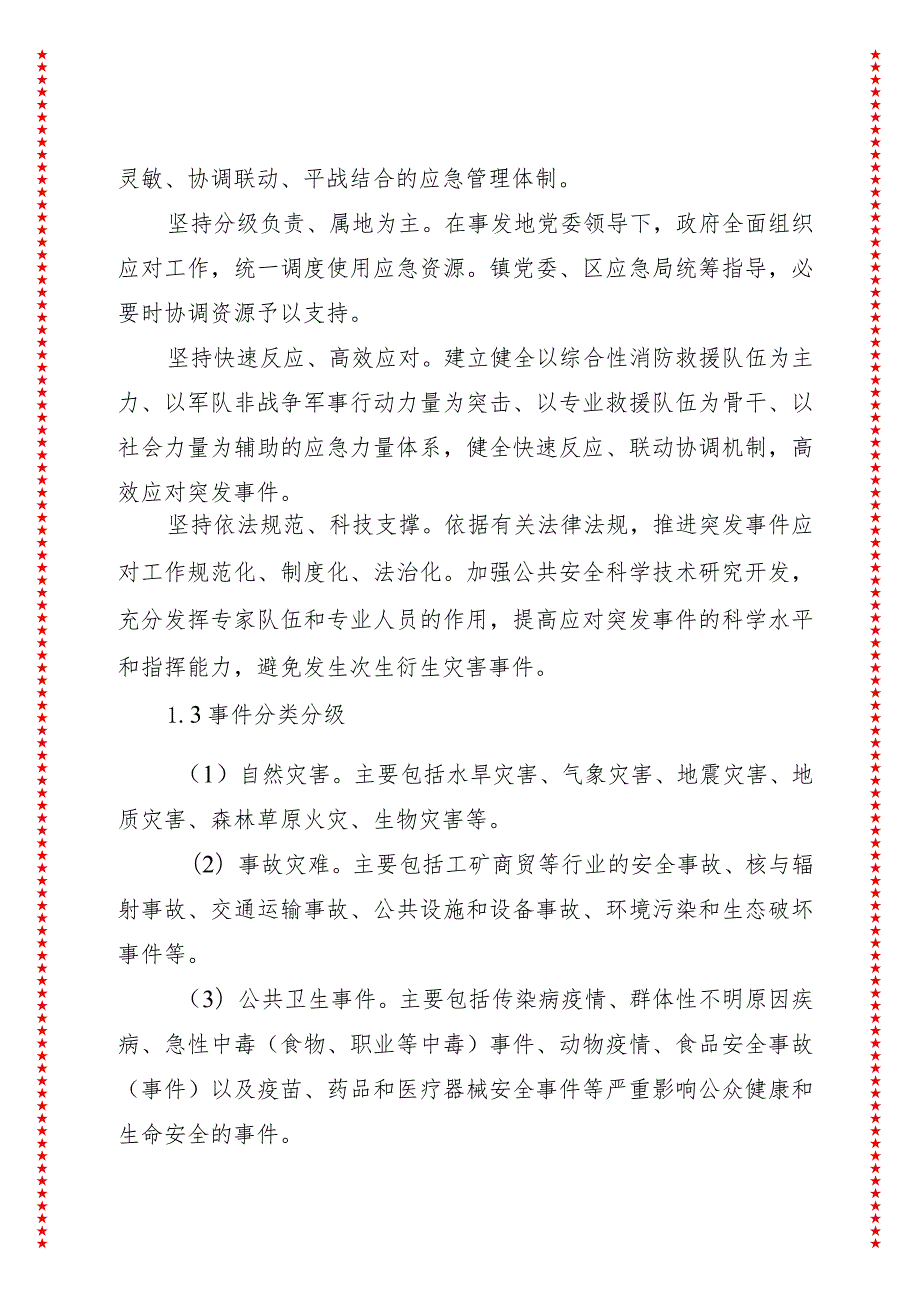 灵敏、协调联动、平战结合的应急管理体制。
坚持分级负责、属地为主。在事发地党委领导下，政府全面组织
应对工作，统一调度使用应急资源。镇党委、区应急局统筹指导，必
要时协调资源予以支持。
坚持快速反应、高效应对。建立健全以综合性消防救援队伍为主
力、以军队非战争军事行动力量为突击、以专业救援队伍为骨干、以
社会力量为辅助的应急力量体系，健全快速反应、联动协调机制，高
效应对突发事件。
坚持依法规范、科技支撑。依据有关法律法规，推进突发事件应
对工作规范化、制度化、法治化。加强公共安全科学技术研究开发，
充分发挥专家队伍和专业人员的作用，提高应对突发事件的科学水平
和指挥能力，避免发生次生衍生灾害事件。
1.3事件分类分级
（1）自然灾害。主要包括水旱灾害、气象灾害、地震灾害、地
质灾害、森林草原火灾、生物灾害等。
（2）事故灾难。主要包括工矿商贸等行业的安全事故、核与辐
射事故、交通运输事故、公共设施和设备事故、环境污染和生态破坏
事件等。
（3）公共卫生事件。主要包括传染病疫情、群体性不明原因疾
病、急性中毒（食物、职业等中毒）事件、动物疫情、食品安全事故
（事件）以及疫苗、药品和医疗器械安全事件等严重影响公众健康和
生命安全的事件。